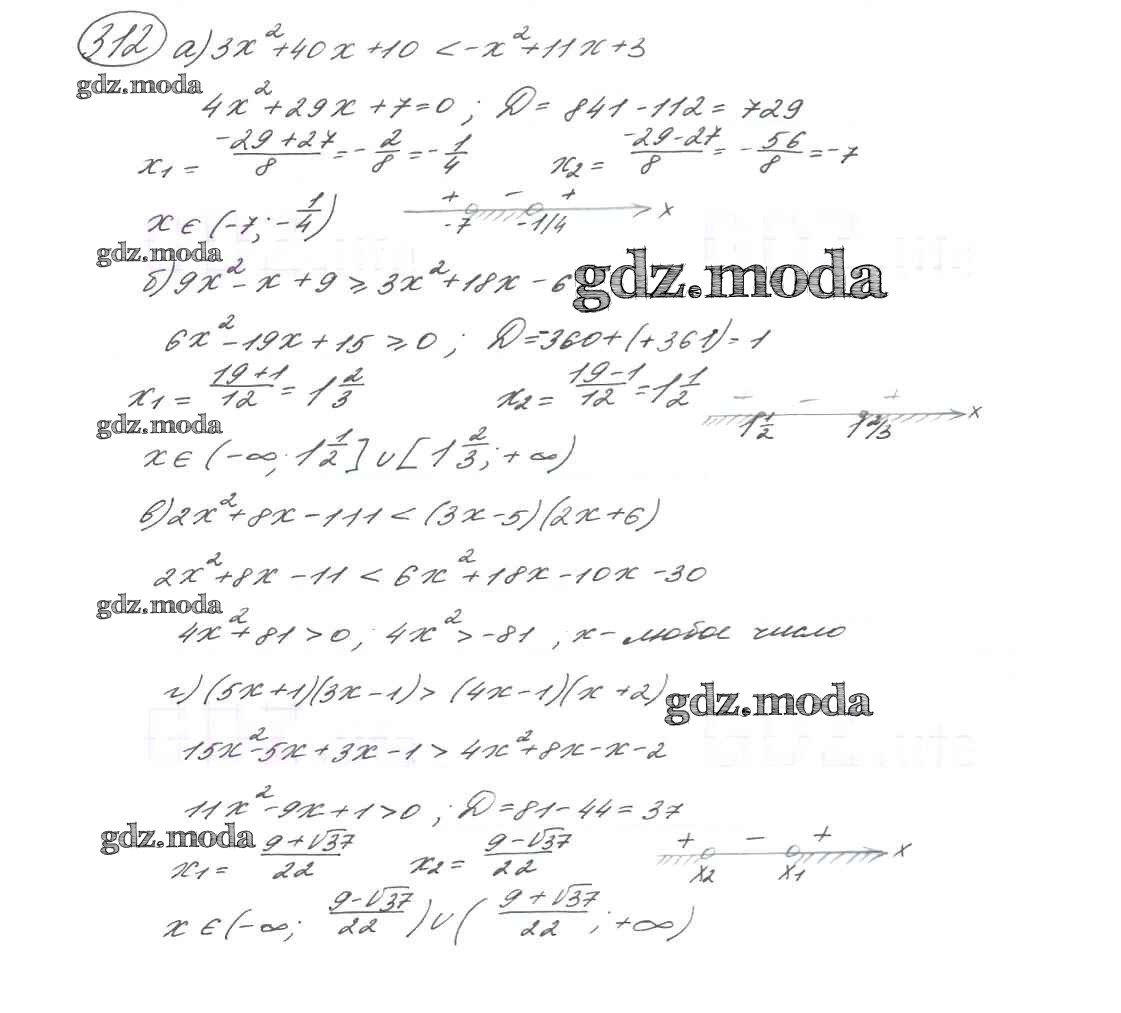 312 а) 3x² + 40x + 10 < -x² + 11x + 3
gdz.moda
4x² + 29x + 7 = 0 ; D = 841 - 112 = 729
x₁ = (-29 + 27)/8 = -2/8 = -1/4 x₂ = (-29 - 27)/8 = -56/8 = -7
x ∈ (-7; -1/4) + - + -7 -1/4 x
gdz.moda
б) 9x² - x + 9 ⩾ 3x² + 18x - 6 gdz.moda
6x² - 19x + 15 ⩾ 0 ; D = -360 + (+361) = 1
x₁ = (19 + 1)/12 = 1 2/3 x₂ = (19 - 1)/12 = 1 1/2 - - + 1 1/2 1 2/3 x
gdz.moda
x ∈ (-∞; 1 1/2] ∪ [1 2/3; +∞)
в) 2x² + 8x - 111 < (3x - 5)(2x + 6)
2x² + 8x - 11 < 6x² + 18x - 10x - 30
gdz.moda
4x² + 81 > 0 ; 4x² > -81 , x - любое число
г) (5x + 1)(3x - 1) > (4x - 1)(x + 2) gdz.moda
15x² - 5x + 3x - 1 > 4x² + 8x - x - 2
11x² - 9x + 1 > 0 ; D = 81 - 44 = 37
gdz.moda
x₁ = (9 + √37)/22 x₂ = (9 - √37)/22 + - + x₂ x₁ x
x ∈ (-∞; (9 - √37)/22) ∪ ((9 + √37)/22; +∞)